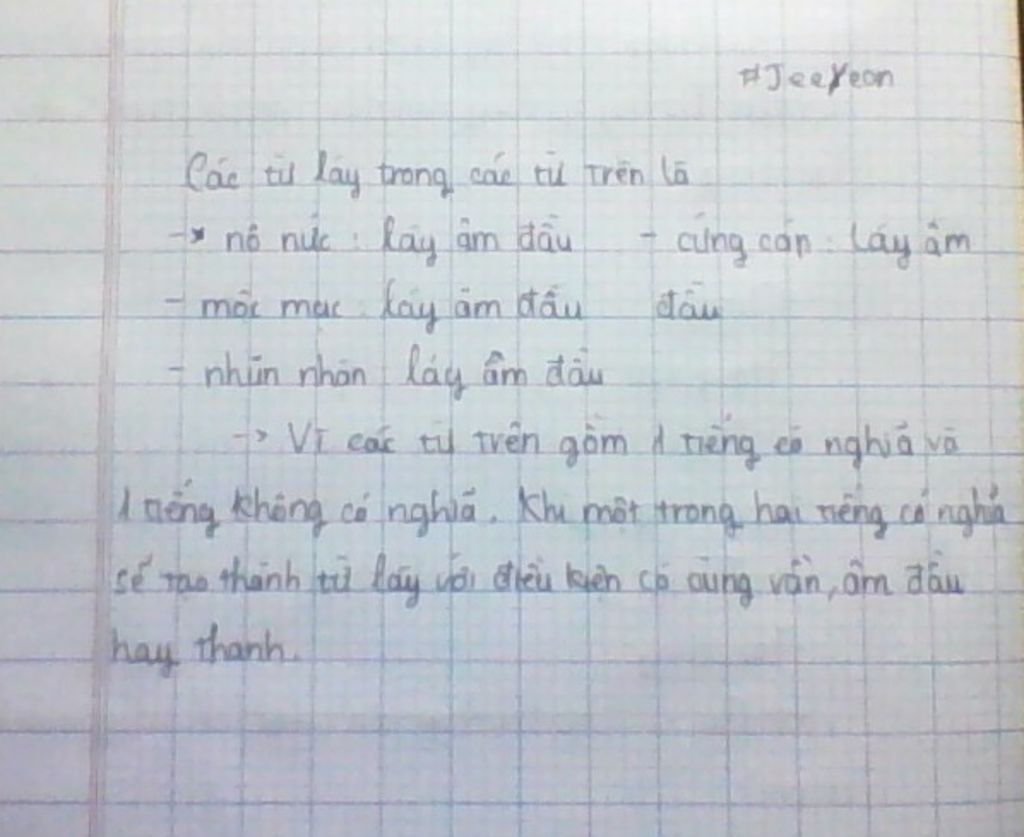 #JeeYeon
Các từ láy trong các từ trên là
-> nô nức: láy âm đầu - cứng cáp: láy âm
- mộc mạc: láy âm đầu đầu
- nhũn nhặn: láy âm đầu
-> Vì các từ trên gồm 1 tiếng có nghĩa và
1 tiếng không có nghĩa. Khi một trong hai tiếng có nghĩa
sẽ tạo thành từ láy với điều kiện có cùng vần, âm đầu
hay thanh.